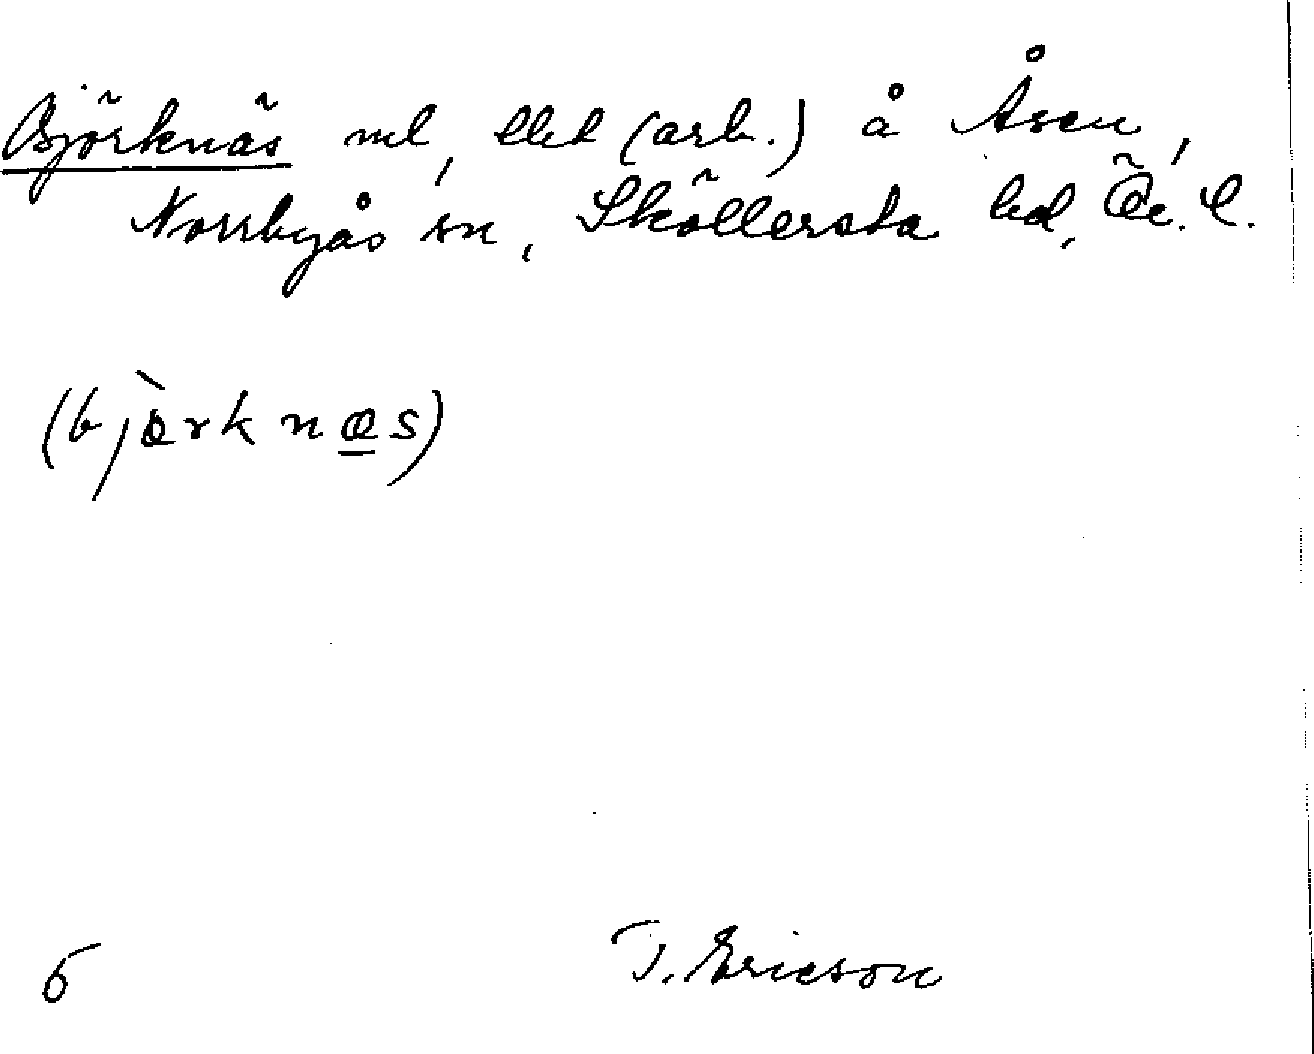 Björknäs ml, lht (arb.) å Åsen,
Norrbyås sn, Sköllersta hd, Ör. l.
(bjærknæs)
6
T. Ericson